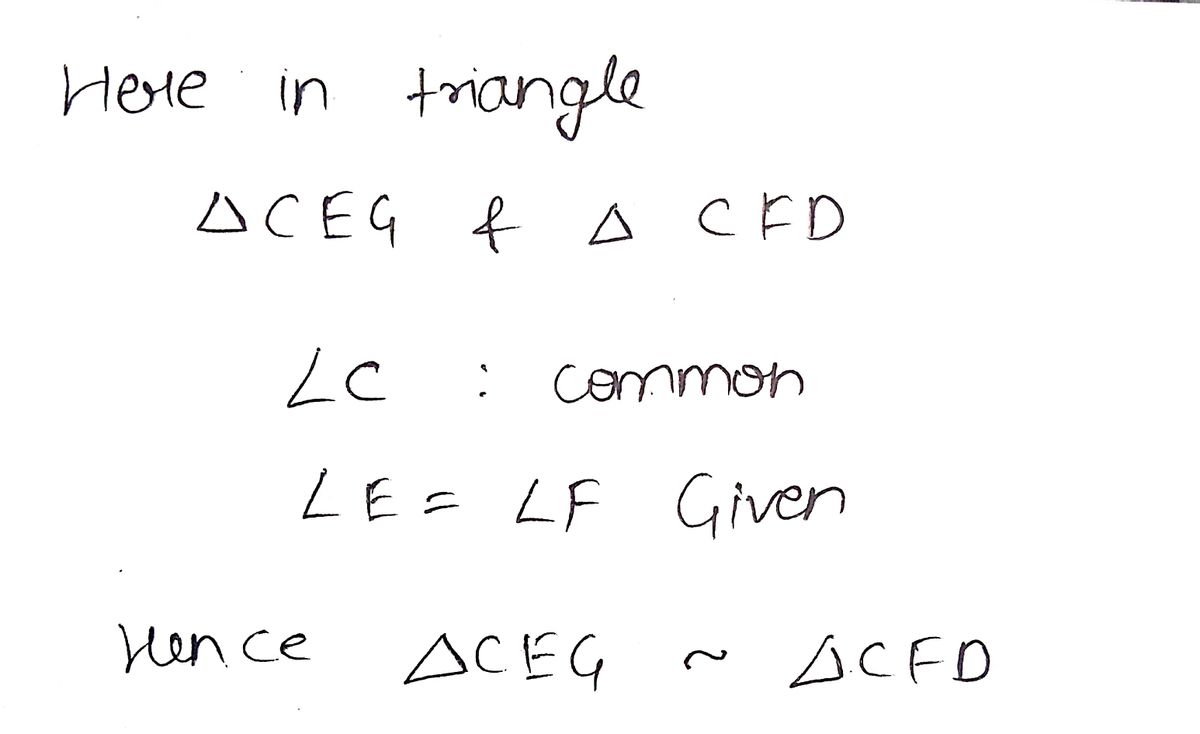 Here in triangle
△CEG & △ CFD
∠C : common
∠E = ∠F Given
Hence △CEG ~ △CFD